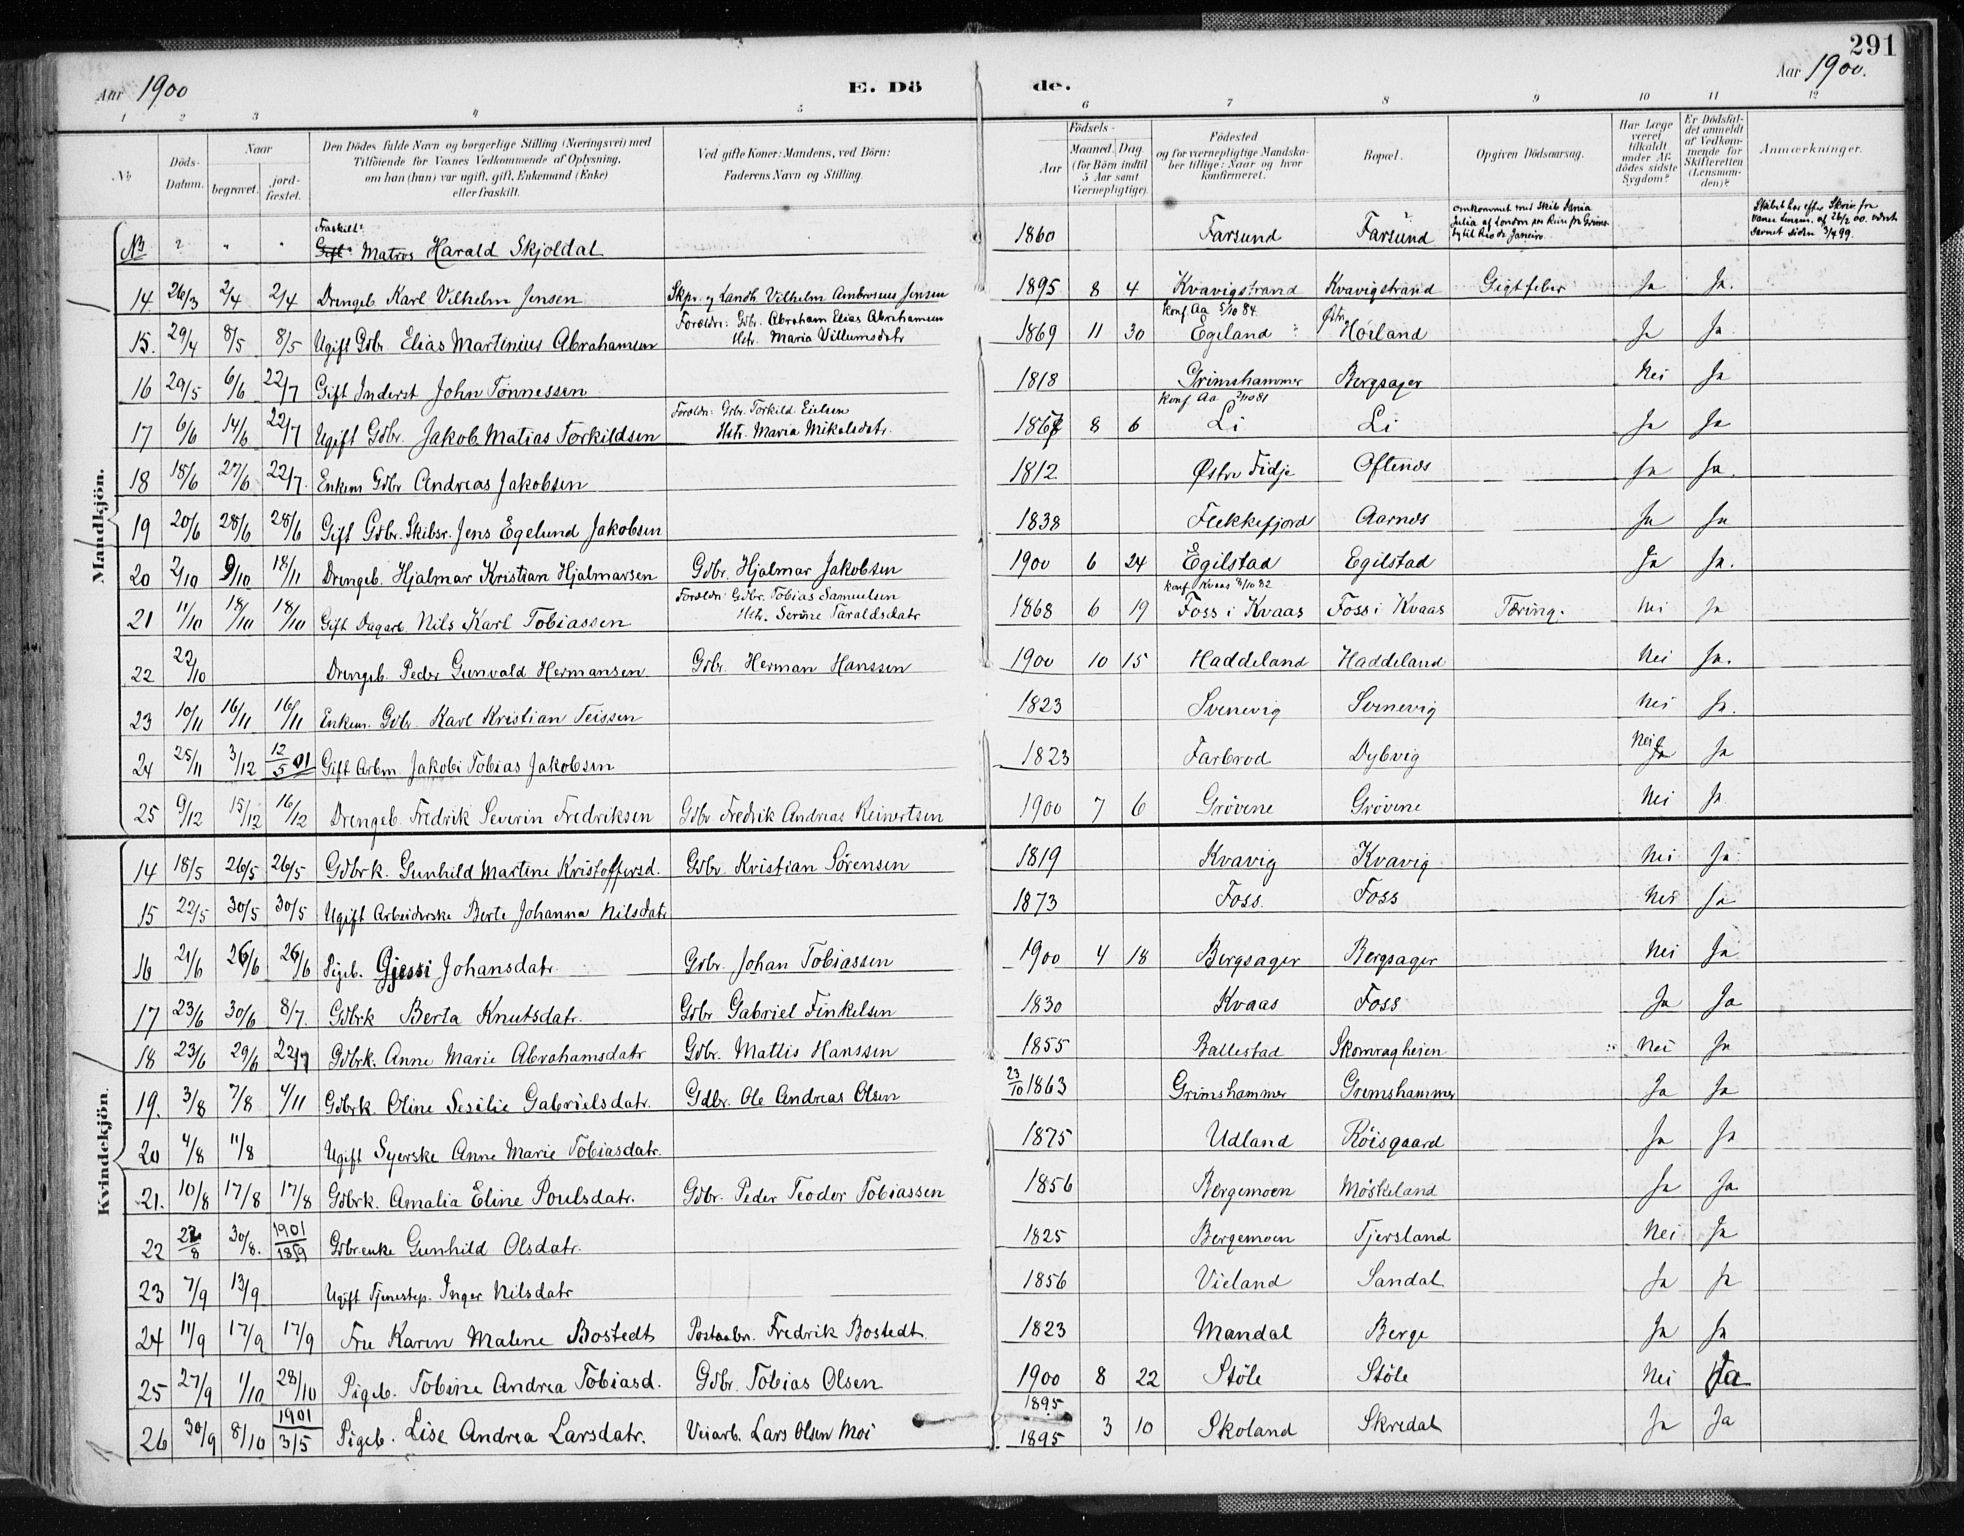 291
Aar 1900 E. Dö de. Aar 1900.
1 2 3 4 5 6 7 8 9 10 11 12
No. Döds-Datum. Naar begravet. jord-fæstet. Den Dödes fulde Navn og borgerlige Stilling (Næringsvei) med Tilföiende for Voxnes Vedkommende af Oplysning, om han (hun) var ugift, gift, Enkemand (Enke) eller fraskilt. Ved gifte Koner: Mandens, ved Börn: Faderens Navn og Stilling. Födsels- Aar Maaned. Dag. (for Börn indtil 5 Aar samt Værnepligtige). Födested og for værnepligtige Mandskaber tillige: Naar og hvor konfirmeret. Bopæl. Opgiven Dödsaarsag. Har Læge været tilkaldt under Afdödes sidste Sygdom? Er Dödsfaldet anmeldt af Vedkommende for Skifteretten (Lensmanden)? Anmærkninger.
Mandkjön.
NB ? " " Fraskilt? Gift? Matros Harald Skjoldal 1860 Farsund Farsund omkommet med Skib Dania Julia af London paa Rein fra Grimsby til Rio de Janeiro. Skibet har efter Skriv fra 26/2 00. været savnet siden 3/4 99.
14. 26/3 2/4 2/4 Drengeb. Karl Vilhelm Jensen Skpr. og Landh. Vilhelm Ambrosius Jensen 1895 8 4 Kvavigstrand Kvavigstrand Gigtfeber Ja Ja.
15. 29/4 8/5 8/5 Ugift Gdbr. Elias Martinius Abrahamsen Forældr: Gdbr. Abraham Elias Abrahamsen Hstr. Maria Villumsdatr 1869 11 30 konf. Aa 5/10 84. Egeland Østr. Hörland Ja Ja.
16 29/5 6/6 22/7 Gift Inderst John Tönnessen 1818 Grimshammer Bergsager Nei Ja
17 6/6 14/6 22/7 Ugift Gdbr. Jakob Matias Torkildsen Forældr: Gdbr. Torkild Eielsen Hstr. Maria Mikalsdatr. 1867 8 6 konf Aa 2/10 81 Li Li Ja Ja
18 18/6 27/6 22/7 Enkem Gdbr Andreas Jakobsen 1812. Østre Fidje Oftenes Ja Ja.
19 20/6 28/6 28/6 Gift Gdbr. Skibsr. Jens Egelund Jakobsen 1838 Flekkefjord Aarnes Ja Ja
20 2/10 9/10 18/11 Drengeb. Hjalmar Kristian Hjalmarsen Gdbr. Hjalmar Jakobsen 1900 6 24 Egilstad Egilstad Ja Ja.
21 11/10 18/10 18/10 Gift Dagarb. Nils Karl Tobiassen Forældr: Gdbr. Tobias Samuelsen Hstr. Serine Taraldsdatr 1868 6 19 konf Kvaas 8/10 82 Foss i Kvaas Foss i Kvaas Tæring. Nei Ja
22 22/10 Drengeb. Peder Gunvald Hermansen. Gdbr. Herman Hanssen 1900 10 15 Haddeland Haddeland Nei Ja.
23 10/11 16/11 16/11 Enkem. Gdbr. Karl Kristian Teissen 1823 Svenevig Svenevig Nei Ja.
24 25/11 3/12 12/5 01 Gift Arbm. Jakobi Tobias Jakobsen 1823 Farbrod Dybvig Nei Ja Ja
25 9/12 15/12 16/12 Drengeb. Fredrik Severin Fredriksen Gdbr Fredrik Andreas Reinertsen 1900 7 6 Grövene Grövene Nei Ja.
Kvindekjön.
14 18/5 26/5 26/5 Gdbrk. Gunhild Martine Kristoffersd. Gdbr. Kristian Sörensen 1819 Kvavig Kvavig Nei Ja.
15 22/5 30/5 30/5 Ugift Arbeiderske Berte Johanna Nilsdatr 1873 Foss. Foss Nei Ja
16 21/6 26/6 26/6 Pigeb. Gjessi Johansdatr Gdbr. Johan Tobiassen 1900 4 18 Bergsager Bergsager Nei Ja
17 23/6 30/6 8/7. Gdbrk Berta Knutsdatr. Gdbr Gabriel Finkelsen 1830 Kvaas Foss Ja Ja
18 23/6 29/6 22/7 Gdbrk. Anne Marie Abrahamsdatr Gdbr. Mattis Hanssen 1855 Ballestad Skomragheien Nei Ja
19. 3/8 7/8 4/11 Gdbrk. Oline Sesilie Gabrielsdatr. Gdbr. Ole Andreas Olsen 23/10 1863 Grimshammer Gremshammer Ja Ja
20 4/8 11/8 Ugift Syerske Anne Marie Tobiasdatr. 1875 Udland Röisgaard Ja Ja
21. 10/8 17/8 17/8 Gdbrk. Amalia Eline Poulsdatr. Gdbr. Peder Teodor Tobiassen 1856 Bergemoen Möskeland Ja Ja
22 22/8 30/8. 1901 Gdbr.enke Gunhild Olsdatr. 1825 Bergemoen Tjersland Nei Ja
23 7/9 13/9 Ugift Tjenestep. Inger Nilsdatr 1856 Vieland Sandal Ja Ja
24 11/9 17/9 17/9 Fru Karen Malene Bostedt Postaabn. Fredrik Bostedt 1823 Mandal Berge Ja Ja
25 27/9 1/10 28/10 Pigeb. Tobine Andrea Tobiasd. Gdbr. Tobias Olsen 1900 8 22 Stöle Stöle Nei Ja
26 30/9 8/10 1901 3/5 Pigeb. Lise Andrea Larsdatr. Veiarb. Lars Olsen Moi 1895 1895 3 10 Skoland Skredal Ja Ja